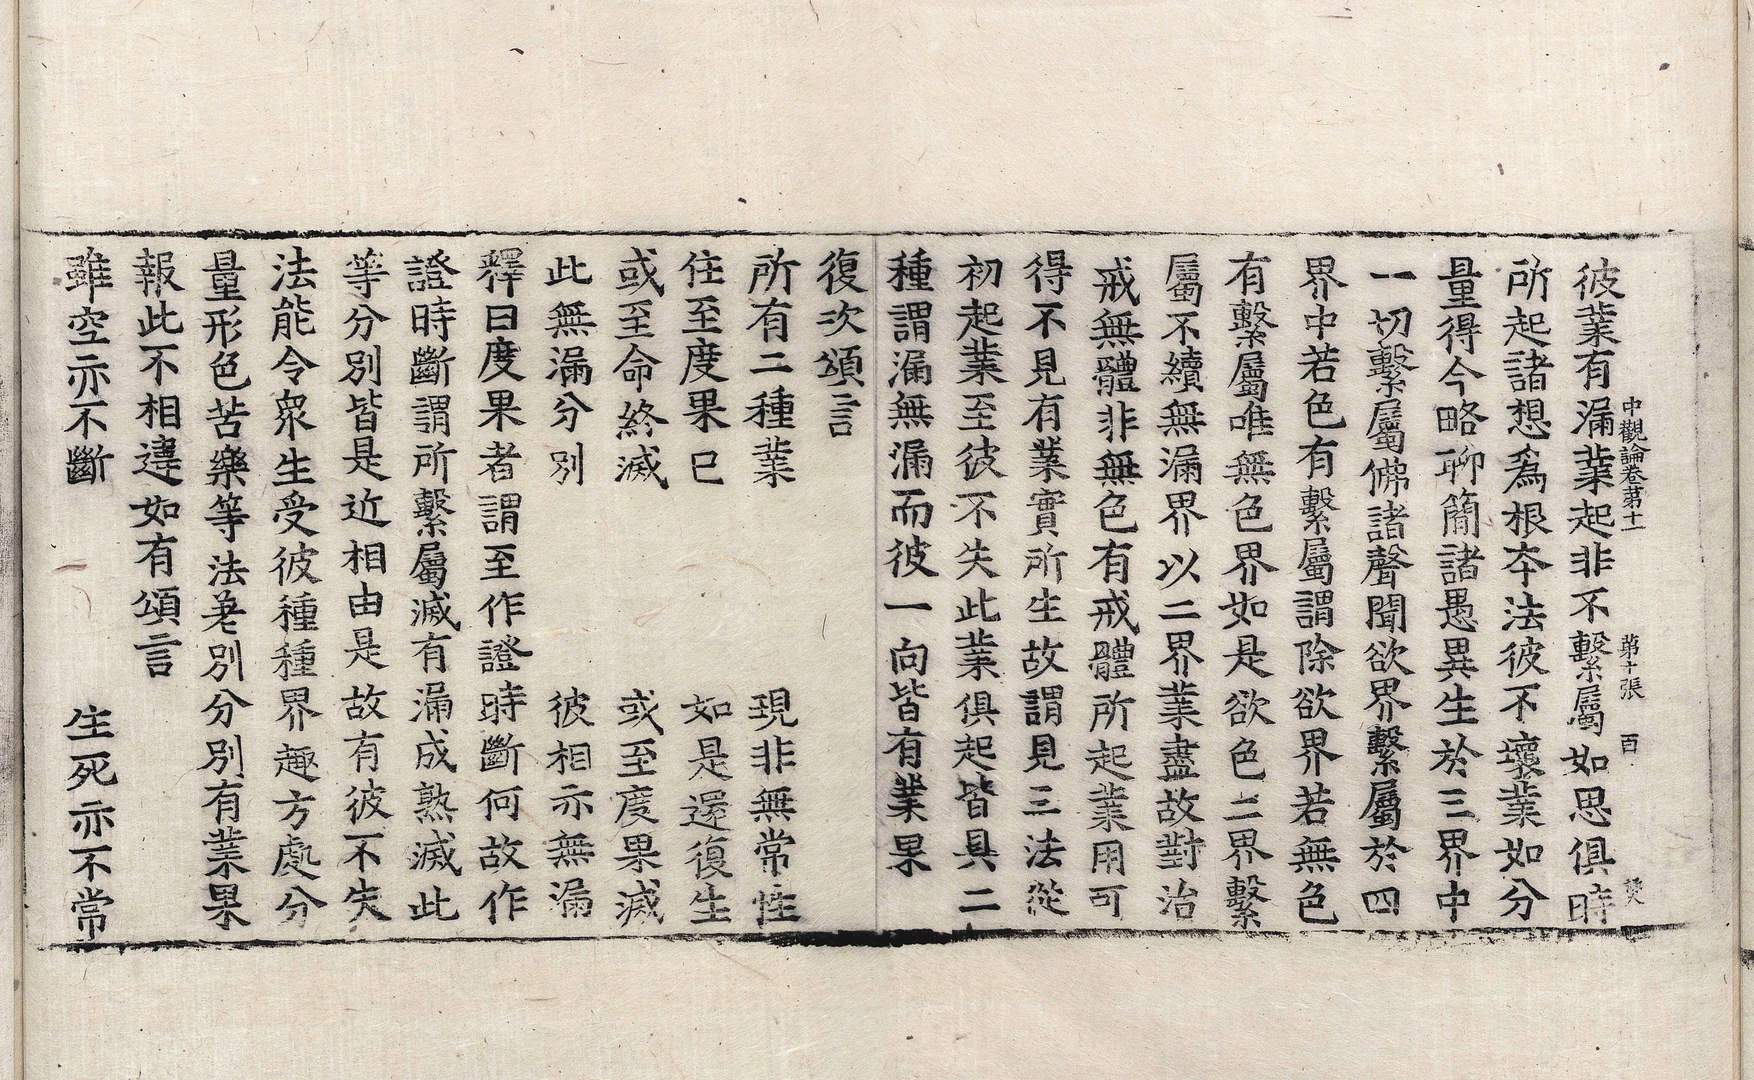 中觀論卷第十一 第十張 百
彼業有漏業起非不繫屬如思俱時
所起諸想爲根夲法彼不壞業如分
量得今略聊簡諸愚異生於三界中
一切繫屬佛諸聲聞欲界繫屬於四
界中若色有繫屬謂除欲界若無色
有繫屬唯無色界如是欲色二界繫
屬不續無漏界以二界業盡故對治
戒無體非無色有戒體所起業用可
得不見有業實所生故謂見三法從
初起業至彼不失此業俱起皆具二
種謂漏無漏而彼一向皆有業果
復次頌言
所有二種業 現非無常性
住至度果已 如是還復生
或至命終滅 或至度果滅
此無漏分別 彼相亦無漏
釋曰度果者謂至作證時斷何故作
證時斷謂所繫屬滅有漏成熟滅此
等分別皆是近相由是故有彼不失
法能令衆生受彼種種界趣方處分
量形色苦樂等法差別分別有業果
報此不相違如有頌言
雖空亦不斷 生死亦不常